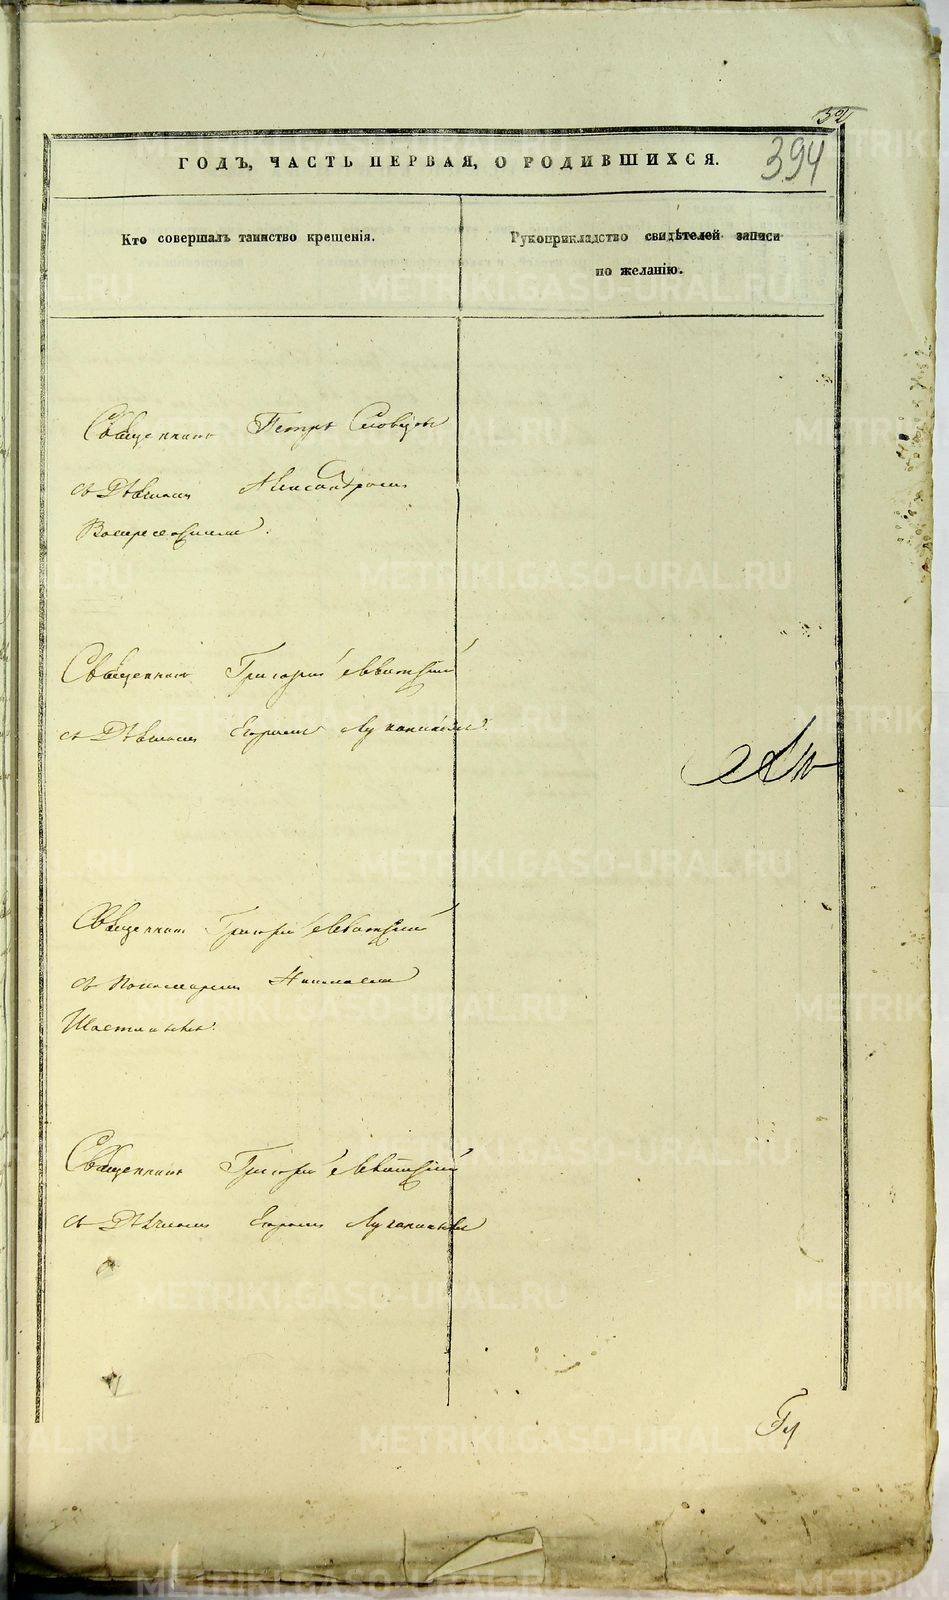 32
394
ГОДЪ, ЧАСТЬ ПЕРВАЯ, О РОДИВШИХСЯ.
Кто совершалъ таинство крещенія.
Рукоприкладство свидѣтелей записи
по желанію.
Священникъ Петръ Словцовъ
съ Дьячкомъ Александромъ
Воскресенскимъ.
Священникъ Григорій Левитскій
съ Дьячкомъ Егоромъ
Священникъ Григорій Левитскій
съ Пономаремъ Николаемъ
Священникъ Григорій Левитскій
съ Дьячкомъ Егоромъ
METRIKI.GASO-URAL.RU